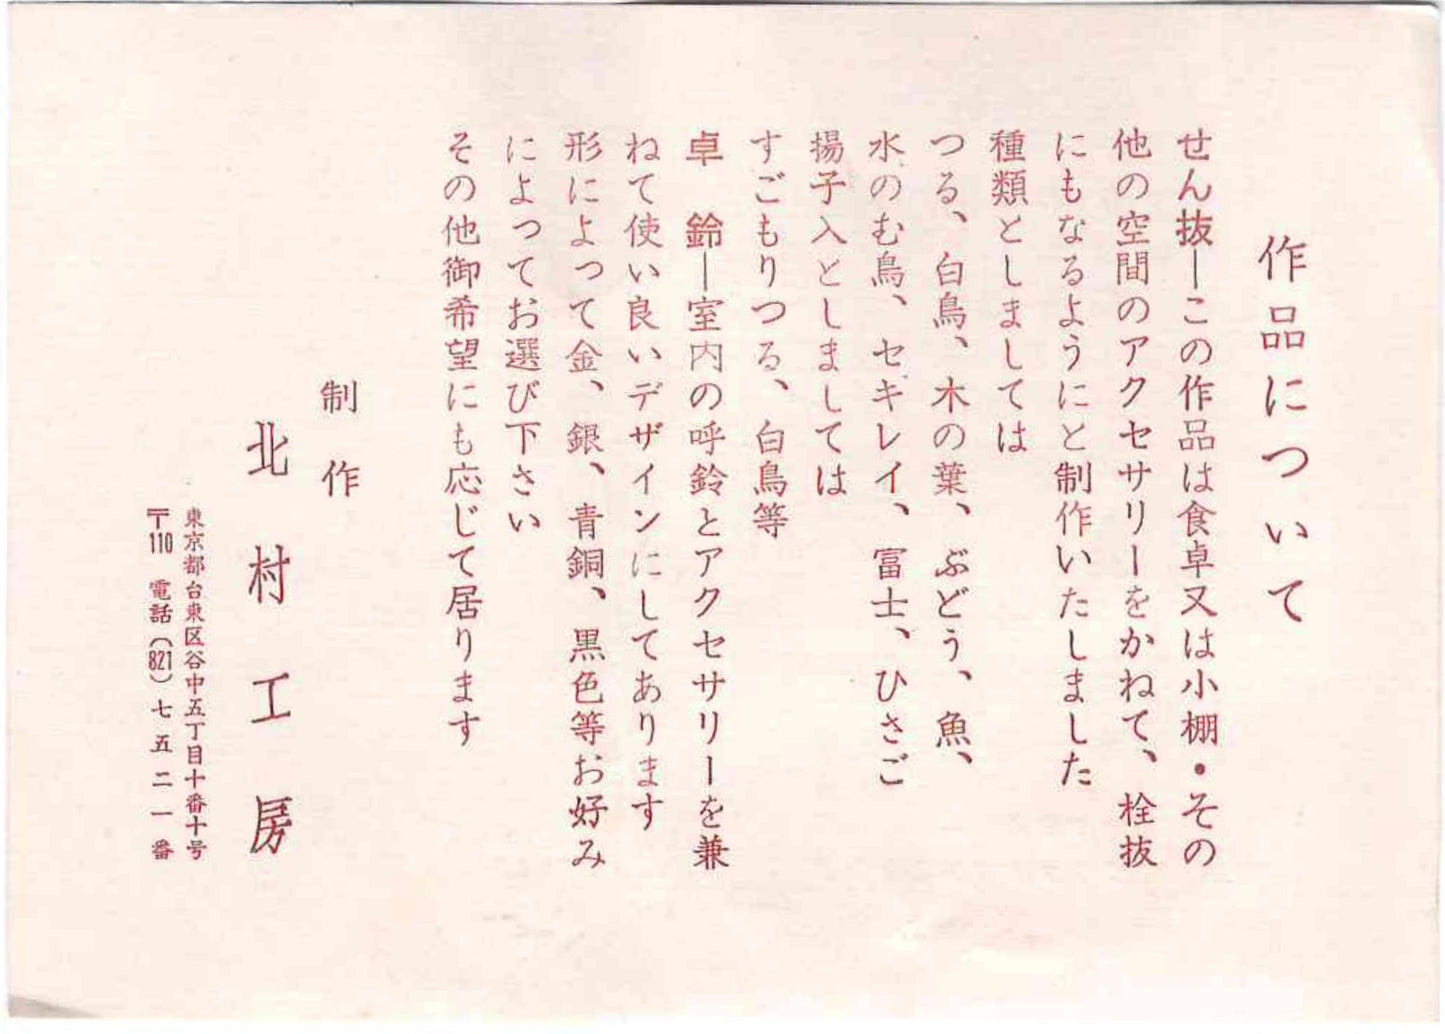 作品について
せん抜―この作品は食卓又は小棚・その
他の空間のアクセサリーをかねて、栓抜
にもなるようにと制作いたしました
種類としましては
つる、白鳥、木の葉、ぶどう、魚、
水のむ鳥、セキレイ、富士、ひさご
揚子入としましては
すごもりつる、白鳥等
卓　鈴―室内の呼鈴とアクセサリーを兼
ねて使い良いデザインにしてあります
形によって金、銀、青銅、黒色等お好み
によってお選び下さい
その他御希望にも応じて居ります
制作
北村工房
東京都台東区谷中五丁目十番十号
〒110 電話(821)七五二一番